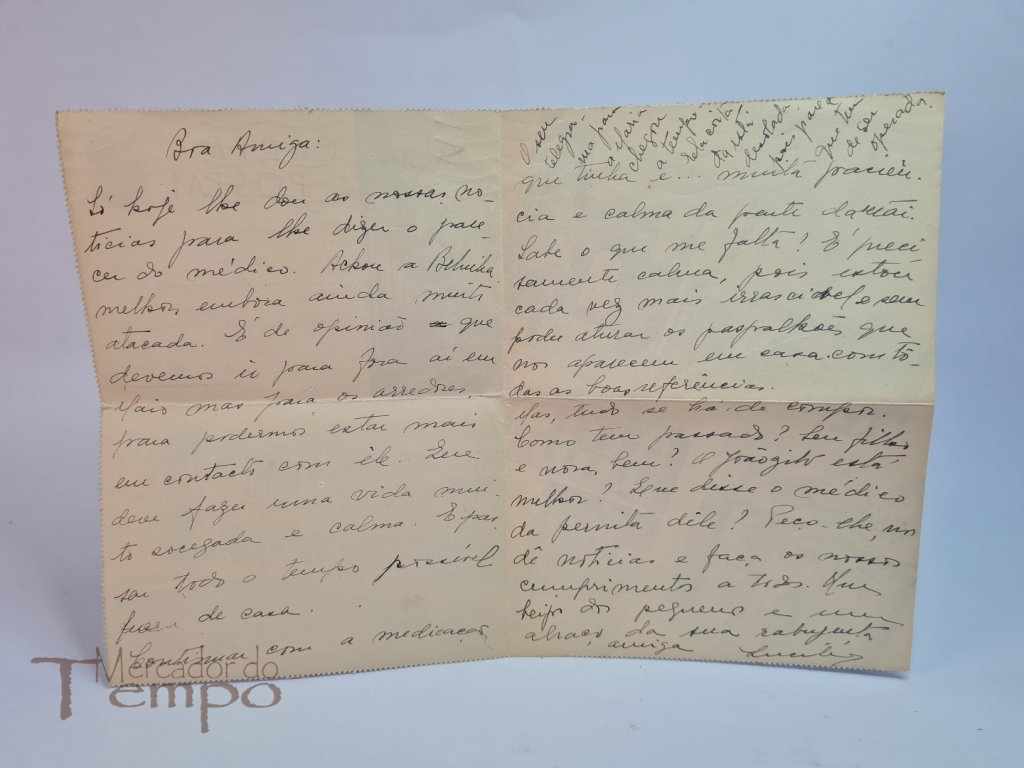 Boa Amiga:
Só hoje lhe dou as nossas no-
tícias para lhe dizer o pare-
cer do médico. Achou a
melhor, embora ainda muito
atacada. É de opinião que
devemos ir para fora aí em
Maio mas para os arredores,
para podermos estar mais
em contacto com êle. Que
deve fazer uma vida mui-
to socegada e calma. E pas-
sar todo o tempo possível
fora de casa.
Continuar com a medicação,
que tinha e... muita paciên-
cia e calma da parte da Mãi.
Sabe o que me falta! É preci
samente calma, pois estou
cada vez mais irrascivel e sem
poder aturar os paspalhões que
nos aparecem em casa com tô-
das as boas referências.
Mas, tudo se há-de compor.
Como tem passado? Seu filho
e nora, bem? O Joãozito está
melhor? Que disse o médico
da pernita dêle? Peço-lhe, nos
dê notícias e faça os nossos
cumprimentos a todos. Um
beijo dos pequenos e um
abraço da sua rabujenta
amiga
O seu
telegra-
ma para
a Maria
chegou
a tempo.
Ela está
desolada
pois parece
que tem
de ser
operada.
Mercador do
Tempo